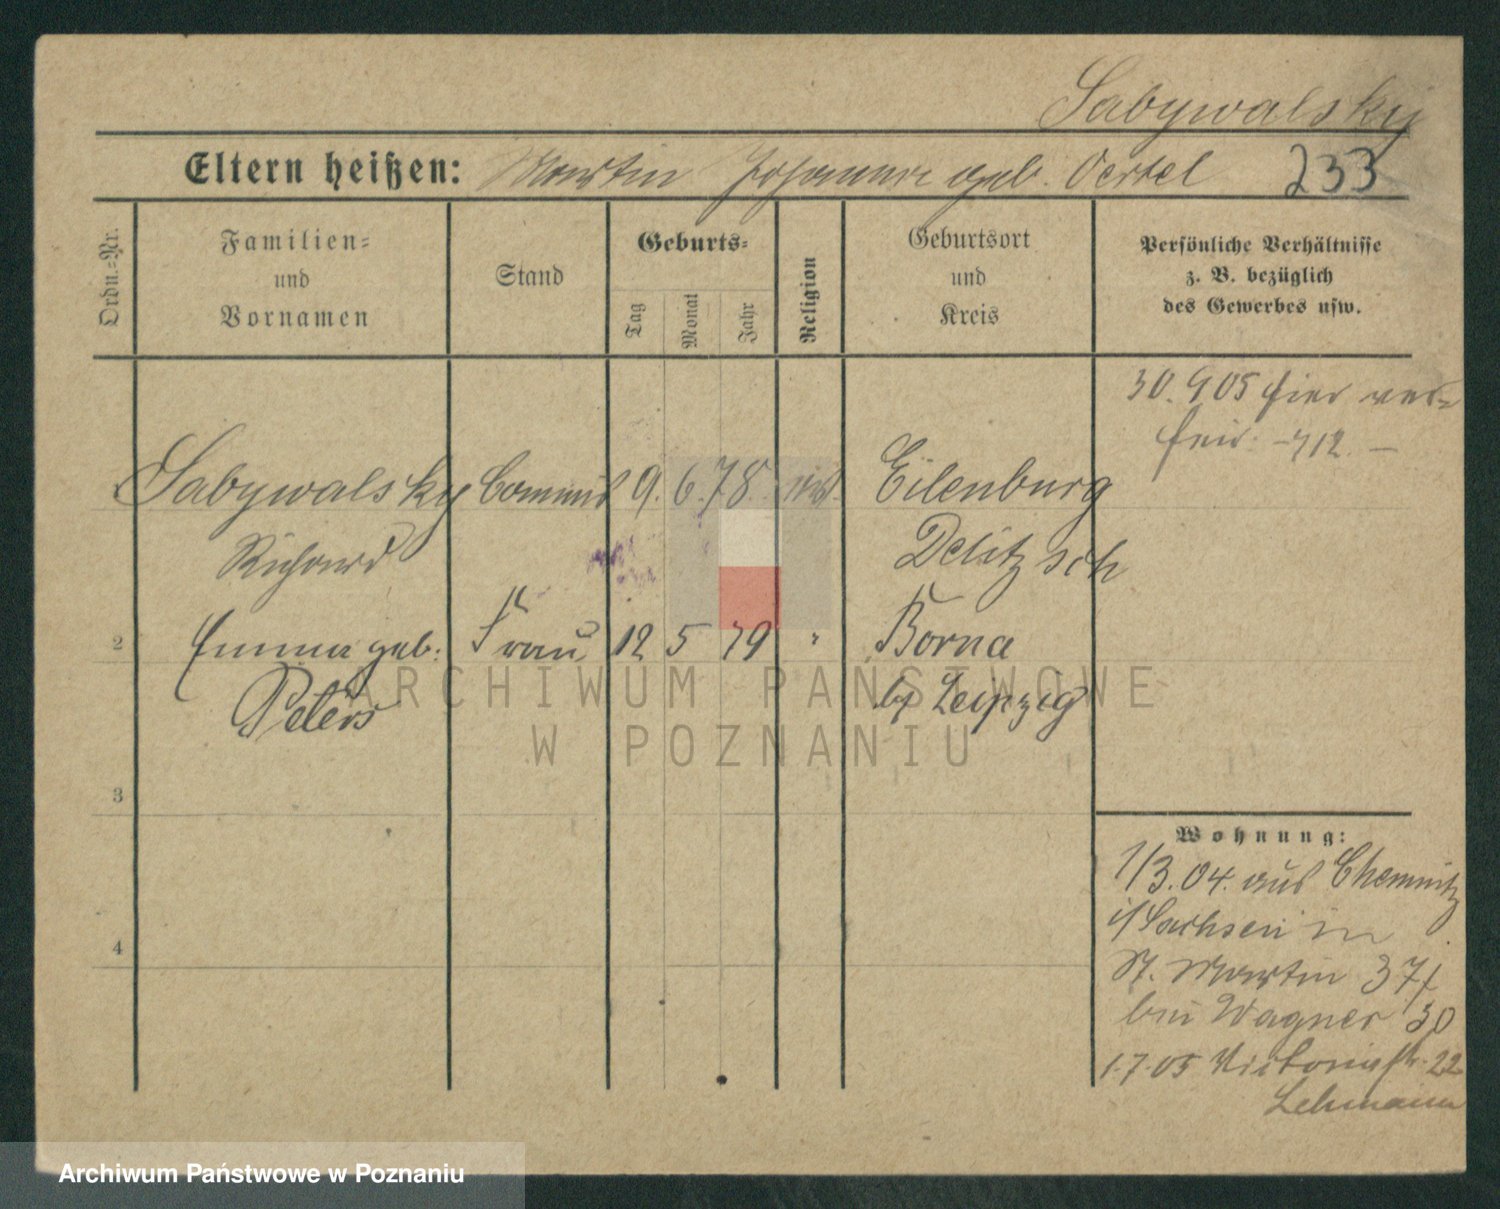 Sabywalsky
Eltern heißen: Martin Johanne geb. Oertel 233
Ordn.=Nr.
Familien=
und
Vornamen
Stand
Geburts=
Tag
Monat
Jahr
Religion
Geburtsort
und
Kreis
Persönliche Verhältnisse
z. B. bezüglich
des Gewerbes usw.
30. 9 05 hier ver=
heir. - 712. -
Sabywalsky 9. 6. 78. Eilenburg
Richard Delitzsch
2 Emma geb. Frau 12 5 79 " Borna
Peters by Leipzig
3
4
Wohnung:
1/3.04. aus Chemnitz
i/Sachsen in
St. Martin 37/
bei Wagner 30
1.7.05 Victoriastr. 22
Lehmann
ARCHIWUM PAŃSTWOWE
W POZNANIU
Archiwum Państwowe w Poznaniu